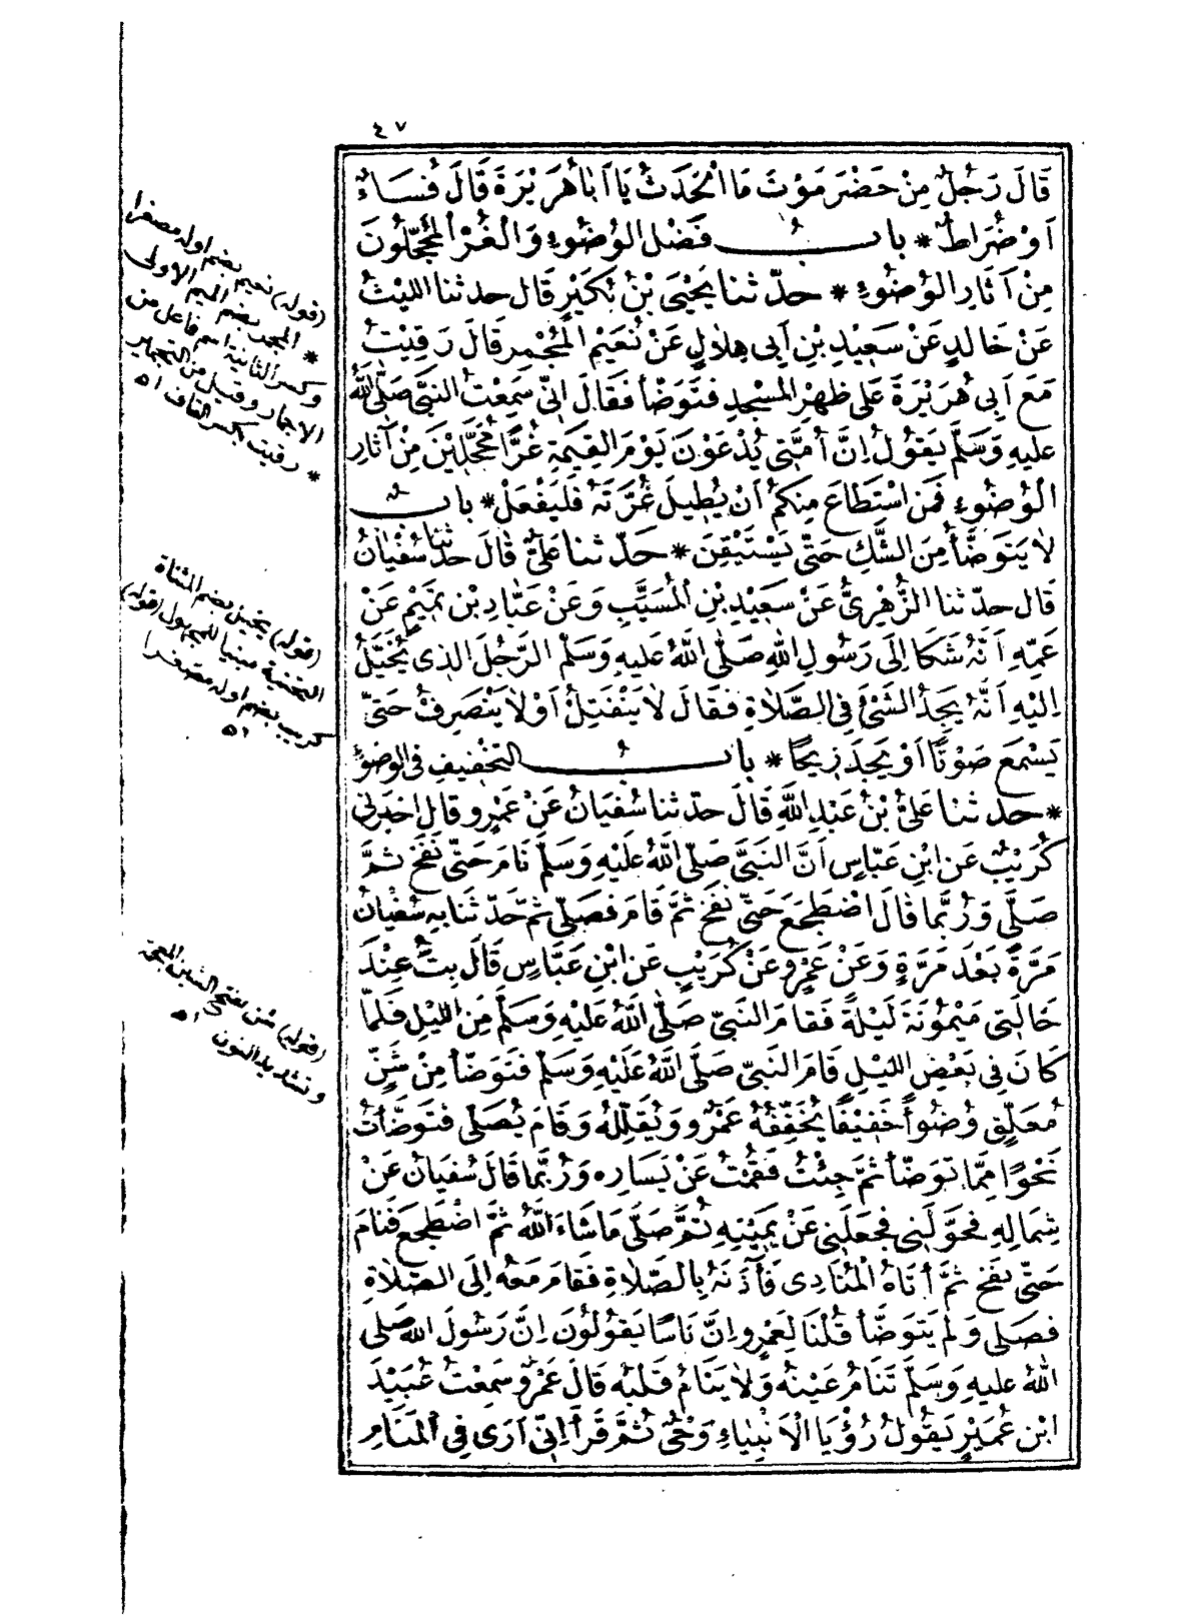 ٤٧
قَالَ رَجُلٌ مِنْ حَضْرَمَوْتَ مَا الْحَدَثُ يَا اَبَا هُرَيْرَةَ قَالَ فُسَاءٌ
اَوْ ضُرَاطٌ * بابُ فَضْلِ الوُضُوءِ وَالْغُرُّ الْمُحَجَّلُونَ
مِنْ آثَارِ الْوُضُوءِ * حدّثنا يَحْيَى بْنُ بُكَيْرٍ قَال حدثنا الليْثُ
عَنْ خَالِدٍ عَنْ سَعِيْدِ بْنِ اَبِى هِلاَلٍ عَنْ نُعَيْمٍ الْمُجْمِرِ قَالَ رَقِيْتُ
مَعَ اَبِى هُرَيْرَةَ عَلَى ظَهْرِ الْمَسْجِدِ فتَوَضَّأَ فَقَالَ اِنِّى سَمِعْتُ النَّبِىَّ صَلَّى اللّٰهُ
عليهِ وَسَلَّم يَقُولُ اِنَّ اُمَّتِى يُدْعَوْنَ يَوْمَ القِيٰمَةِ غُرًّا مُحَجَّلِيْنَ مِنْ آثَارِ
الْوُضُوءِ فَمَنِ اسْتَطَاعَ مِنْكُمْ اَنْ يُطِيلَ غُرَّتَهُ فَلْيَفْعَلْ * بابٌ
لاَ يَتَوَضَّأُ مِنَ الشَّكِّ حَتّى يَسْتَيْقِنَ * حَدّثنا عَلِىٌّ قَالَ حدثنا سُفْيَانُ
قَال حدّثنا الزُّهْرِىُّ عَنْ سَعِيْدِ بْنِ الْمُسَيَّبِ وَعَنْ عَبَّادِ بْن تَمِيْمٍ عَنْ
عَمِّهِ اَنَّهُ شَكَا اِلَى رَسُولِ اللّٰهِ صَلَّى اللّٰهُ عليهِ وَسَلَّمَ الرَّجُلَ الذى يُخَيَّلُ
اِليْهِ اَنَّهُ يَجِدُ الشَّىْءَ فِى الصَّلاَةِ فقَالَ لاَ يَنْفَتِلْ اَوْ لاَ يَنْصَرِفْ حَتىّ
يَسْمَعَ صَوْتًا اَوْ يَجِدَ رِيحًا * بابُ التخْفِيفِ فى الوضوءِ
* حدّثنا عَلِىُّ بْنُ عَبْدِ اللّٰهِ قَالَ حدّثنا سُفيَانُ عَنْ عَمْرٍو قال اخبَرنى
كُرَيْبٌ عَن ابْنِ عَبّاسٍ اَنَّ النَّبِىَّ صَلّى اللّٰهُ عَلَيْهِ وَسَلّمَ نَامَ حَتّى نَفَخَ ثمَّ
صَلَّى وَرُبَّمَا قَالَ اضْطَجَعَ حَتىّ نفَخَ ثمَّ قَامَ فَصَلّى ثمّ حَدّثَنَا بِهِ سُفْيَانُ
مَرَّةً بَعْدَ مَرَّةٍ وَعَنْ عَمْرٍو عَنْ كُرَيْبٍ عَن ابْنِ عَبَّاسٍ قَالَ بِتُّ عِنْدَ
خَالَتِى مَيْمُونَةَ لَيْلَةً فَقامَ النَّبىّ صَلّى اللّٰهُ عَلَيْهِ وَسَلّمَ مِنَ الليْلِ فَلمَّا
كَانَ فِى بَعْضِ الليْلِ قَامَ النَّبىّ صَلَّى اللّٰهُ عَلَيْهِ وَسَلّمَ فَتَوَضّأ مِنْ شَنٍّ
مُعَلّقٍ وُضُوأً خَفِيْفًا يُخَفِّفُهُ عَمْرٌو وَيُقَلِّلُهُ وَقَامَ يُصَلّى فتَوَضّأتُ
نَحْوًا مِمّا تَوَضّأ ثمَّ جِئْتُ فَقُمْتُ عَنْ يَسَارِه وَرُبَّمَا قَالَ سُفيَان عَنْ
شِمَالِهِ فحَوَّلَنِى فجَعَلَنِى عَنْ يَمِيْنِهِ ثُمَّ صَلَّى مَا شَاءَ اللّٰهُ ثمَّ اضْطَجَعَ فَنَامَ
حَتّى نفَخَ ثمَّ أتَاهُ الْمُنَادِى فَآذَنَهُ بِالصّلاَةِ فقَامَ مَعَهُ اِلَى الصّلاَةِ
فصَلى وَلَمْ يَتَوَضّأ قُلْنَا لِعَمْرٍو اِنَّ نَاسًا يَقُولُونَ اِنَّ رَسُولَ اللهِ صَلى
اللّٰهُ عليهِ وَسَلّمَ تَنَامُ عَيْنُهُ وَلاَ يَنَامُ قَلبُهُ قَالَ عَمْرٌو سَمِعْتُ عُبَيْدَ
ابْن عُمَيْرٍ يَقُولُ رُؤْيَا الْاَنْبِيَاءِ وَحْىٌ ثُمَّ قَرَأَ اِنِّى اَرَى فِى الْمَنَامِ
(قوله) نعيم بضم اوله مصغرا
* المجمر بضم الميم الاولى
وكسر الثانية اسم فاعل من
الاجمار وقيل من التجمير
* رقيت بكسر القاف اه
(قوله) يخيل بضم المثناة
التحتية مبنيا للمجهول (قوله)
كريب بضم اوله مصغرا
اه
(قوله) شن بفتح الشين المعجمة
وتشديد النون اه